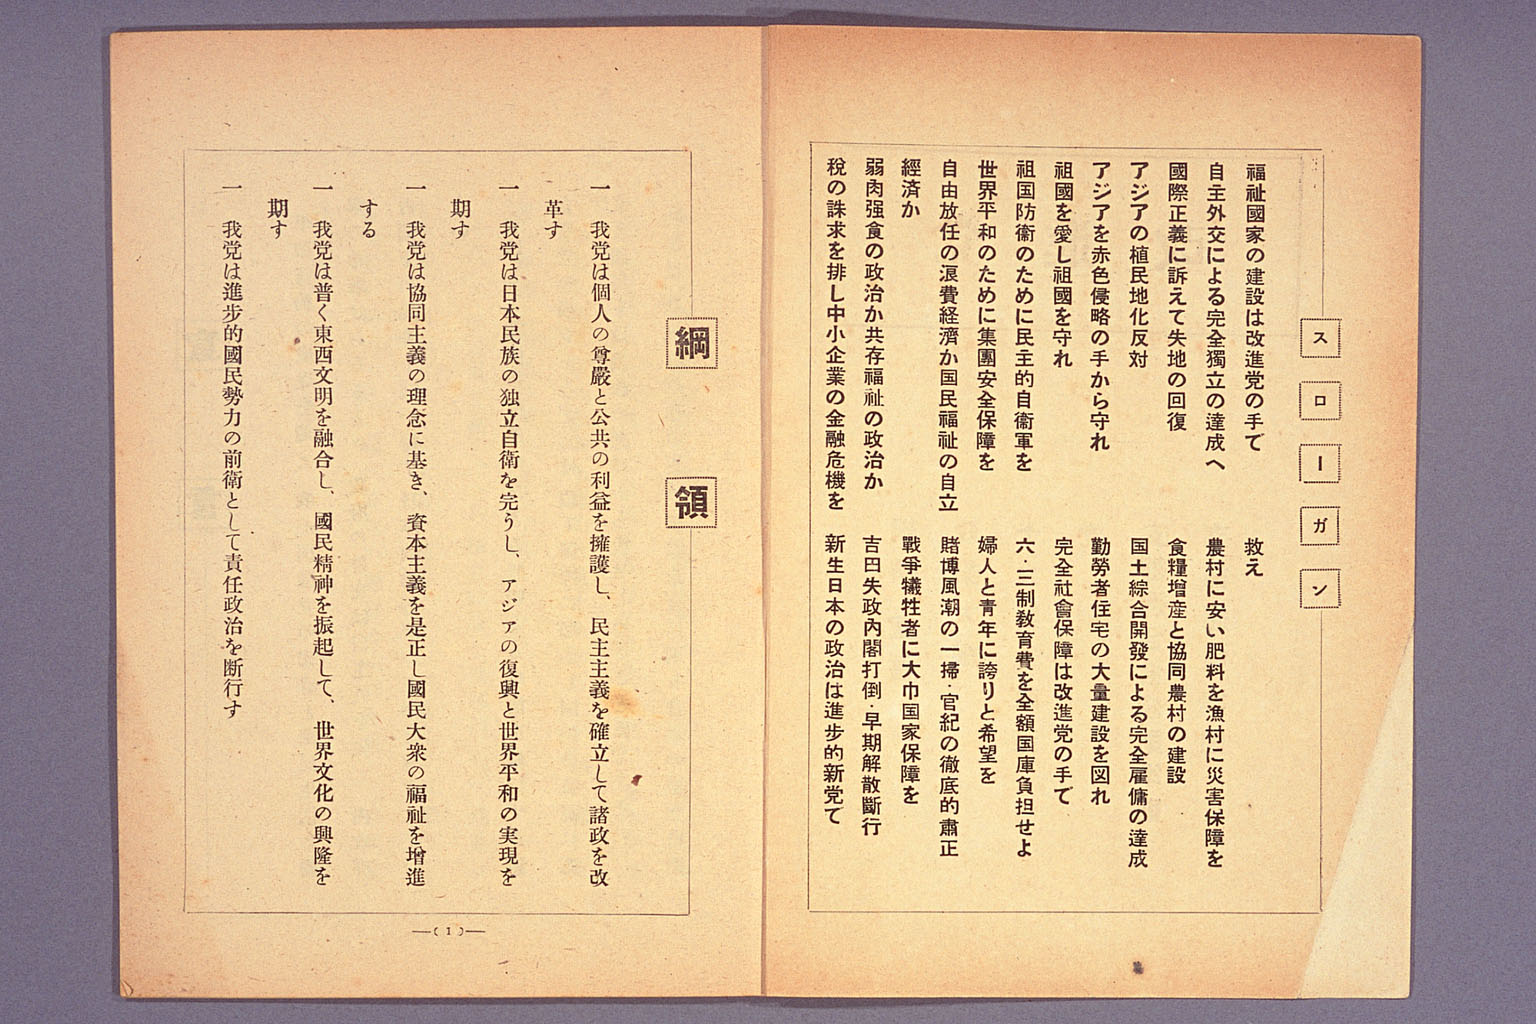 スローガン
福祉國家の建設は改進党の手で
自主外交による完全獨立の達成へ
國際正義に訴えて失地の回復
アジアの植民地化反対
アジアを赤色侵略の手から守れ
祖國を愛し祖國を守れ
祖国防衞のために民主的自衞軍を
世界平和のために集團安全保障を
自由放任の浪費経済か国民福祉の自立
經済か
弱肉强食の政治か共存福祉の政治か
税の誅求を排し中小企業の金融危機を
救え
農村に安い肥料を漁村に災害保障を
食糧增産と協同農村の建設
国土綜合開發による完全雇傭の達成
勤勞者住宅の大量建設を図れ
完全社會保障は改進党の手で
六・三制教育費を全額国庫負担せよ
婦人と青年に誇りと希望を
賭博風潮の一掃・官紀の徹底的肅正
戰爭犧牲者に大巾国家保障を
吉田失政內閣打倒・早期解散斷行
新生日本の政治は進步的新党で
綱領
一 我党は個人の尊嚴と公共の利益を擁護し、民主主義を確立して諸政を改
革す
一 我党は日本民族の独立自衛を完うし、アジアの復興と世界平和の実現を
期す
一 我党は協同主義の理念に基き、資本主義を是正し國民大衆の福祉を增進
する
一 我党は普く東西文明を融合し、國民精神を振起して、世界文化の興隆を
期す
一 我党は進步的國民勢力の前衛として責任政治を断行す
—( 1 )—